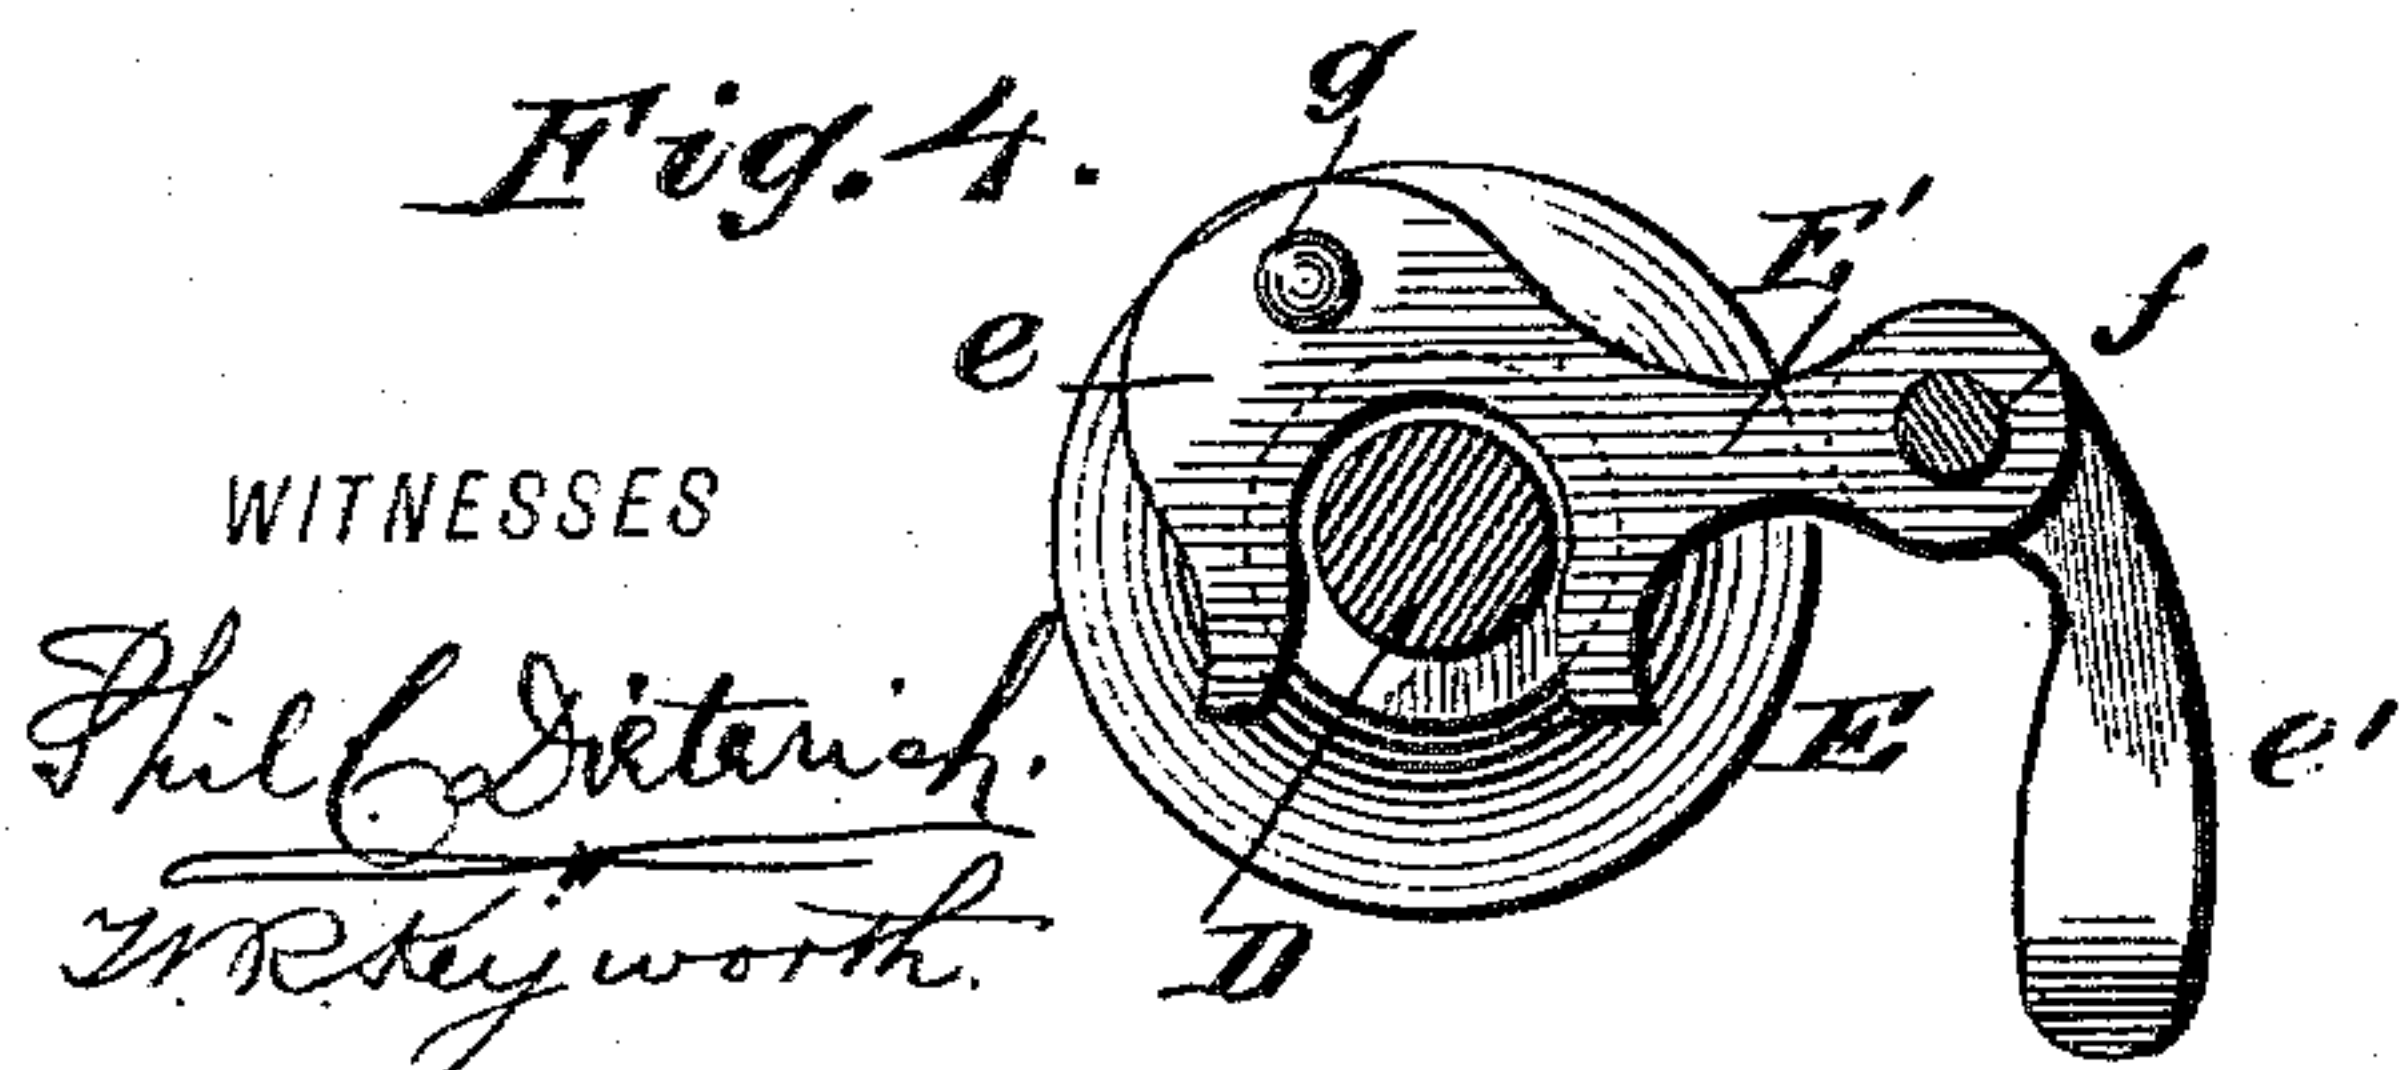 Fig. 4.
g
E'
f
e
WITNESSES
E
e'
Phil C. Dieterich.
W R Keyworth.
D